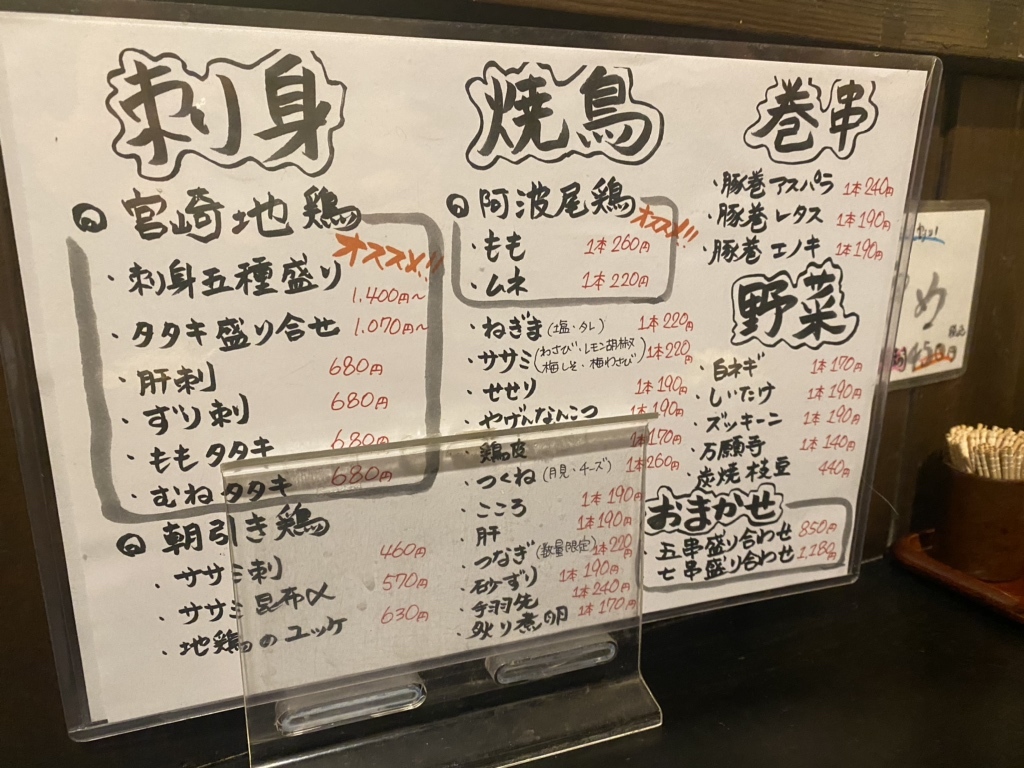 刺身
宮崎地鶏
オススメ!!
・刺身五種盛り 1,400円~
・タタキ盛り合せ 1,070円~
・肝刺 680円
・ずり刺 680円
・ももタタキ 680円
・むねタタキ 680円
朝引き鶏
・ササミ刺 460円
・ササミ昆布〆 570円
・地鶏のユッケ 630円
焼鳥
阿波尾鶏
オススメ!!
・もも 1本260円
・ムネ 1本220円
・ねぎま(塩・タレ) 1本220円
・ササミ(わさび・レモン胡椒 梅しそ・梅わさび) 1本220円
・せせり 1本190円
・やげんなんこつ 1本190円
・鶏皮 1本170円
・つくね(月見・チーズ) 1本260円
・こころ 1本190円
・肝 1本190円
・つなぎ(数量限定) 1本220円
・砂ずり 1本190円
・手羽先 1本240円
・炙り煮卵 1本170円
巻串
・豚巻アスパラ 1本240円
・豚巻レタス 1本190円
・豚巻エノキ 1本190円
野菜
・白ネギ 1本170円
・しいたけ 1本190円
・ズッキーニ 1本190円
・万願寺 1本140円
・炭焼枝豆 440円
おまかせ
・五串盛り合わせ 850円
・七串盛り合わせ 1,180円
め